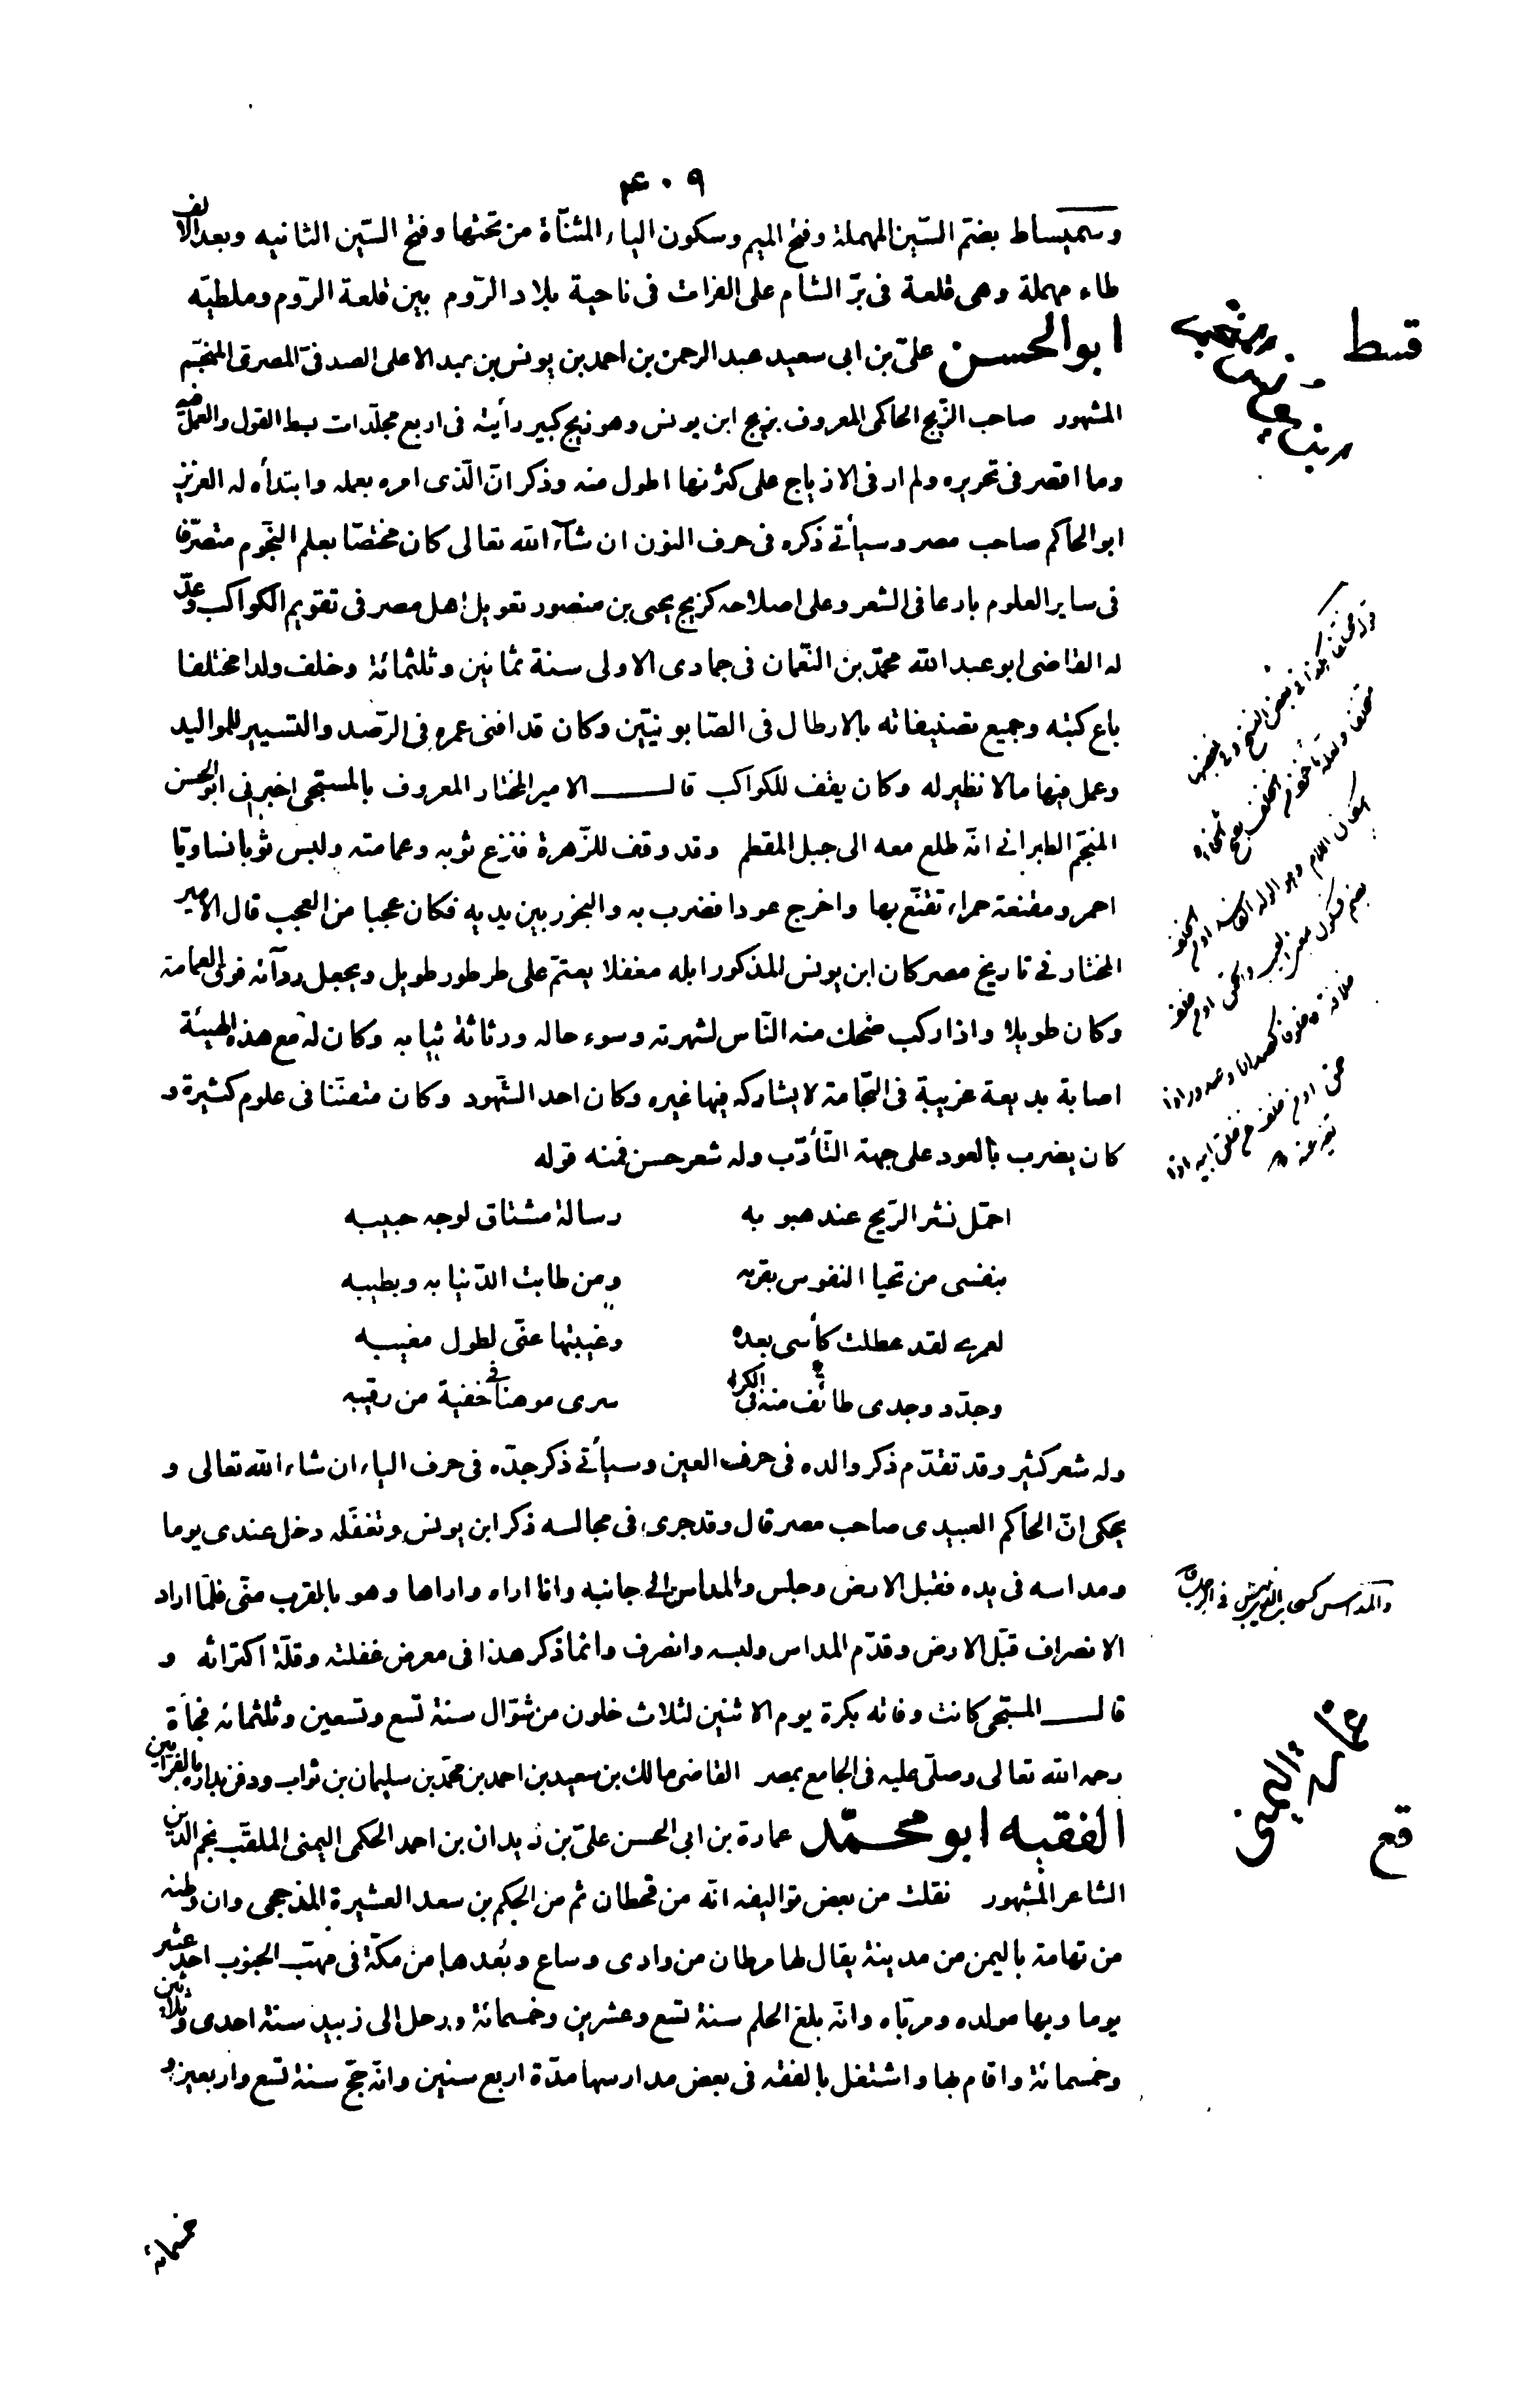 ۴۰۹
وسميساط بضمّ السّين المهملة وفتح الميم وسكون الياء المثنّاة من تحتها وفتح السّين الثانيه وبعد الالف
طاء مهملة وهى قلعة فى برّ الشام على الفرات فى ناحية بلاد الرّوم بين قلعة الرّوم وملطيّه
قسط
ابو الحسن علىّ بن ابى سعيد عبد الرحمن بن احمد بن يونس بن عبد الاعلى الصدفىّ المصرىّ المنجّم
المشهور صاحب الزّيج الحاكمى المعروف بزيج ابن يونس وهو زيج كبير رأيته فى اربع مجلّدات بسط القول والعمل فيه
وما اقصر فى تحريره ولم ار فى الازياج على كثرتها اطول منه وذكر انّ الّذى امره بعمله وابتدأه له العزيز
ابو الحاكم صاحب مصر وسيأتے ذكره فى حرف النون ان شآء الله تعالى كان مختصّا بعلم النّجوم متصرّفا
فى ساير العلوم بارعا فى الشعر وعلى اصلاحه كزيج يحيى بن منصور تعويل اهل مصر فى تقويم الكواكب وعدّ
له القاضى ابو عبد الله محمّد بن النّعمان فى جمادى الاولى سنة ثمانين وثلثمائة وخلف ولدا مختلفا
باع كتبه وجميع تصنيفاته بالارطال فى الصّابونيّين وكان قد افنى عمره فى الرّصد والتسيير للمواليد
وعمل فيها ما لا نظير له وكان يقف للكواكب قال الامير المختار المعروف بالمسبّحى اخبرنى ابو الحسن
المنجّم الطبرانے انّه طلع معه الى جبل المقطم وقد وقف للزّهرة فنزع ثوبه وعمامته ولبس ثوبا نساويّا
احمر ومقنعة حمراء تقنّع بها واخرج عودا فضرب به والبخور بين يديه فكان عجبا من العجب قال الامير
المختار فے تاريخ مصر كان ابن يونس المذكور ابله مغفلا يعتمّ على طرطور طويل ويجعل ردآئه فوق العمامة
وكان طويلا واذا ركب ضحك منه النّاس لشهرته وسوء حاله ورثاثة ثيابه وكان له مع هذه الهيئة
اصابة بديعة غريبة فى النّجامة لا يشاركه فيها غيره وكان احد الشّهود وكان متفنّنا فى علوم كثيرة و
كان يضرب بالعود على جهة التّأدّب وله شعر حسن فمنه قوله
احمّل نشر الرّيح عند هبوبه رسالة مشتاق لوجه حبيبه
بنفسى من تحيا النفوس بقربه ومن طابت الدّنيا به وبطيبه
لعمرے لقد عطلت كأسى بعده وغيبتها عنّى لطول مغيبه
وجدّد وجدى طائف منه فى الكرى سرى موهنا فى خفية من رقيبه
وله شعر كثير وقد تقدّم ذكر والده فى حرف العين وسيأتے ذكر جدّه فى حرف الياء ان شاء الله تعالى و
يحكى انّ الحاكم العبيدى صاحب مصر قال وقد جرى فى مجالسه ذكر ابن يونس وتغفّله دخل عندى يوما
ومداسه فى يده فقبل الارض وجلس والمداس الى جانبه وانا اراه واراها وهو بالقرب منّى فلمّا اراد
الانصراف قبّل الارض وقدّم المداس ولبسه وانصرف وانما ذكر هذا فى معرض غفلته وقلّة اكتراثه و
قال المسبّحى كانت وفاته بكرة يوم الاثنين لثلاث خلون من شوّال سنة تسع وتسعين وثلثمائه فجأة
رحمه الله تعالى وصلّى عليه فى الجامع بمصر القاضى مالك بن سعيد بن احمد بن محمّد بن سليمان بن ثواب ودفن بداره بالفرّائين
عمارة اليمنى
قع
الفقيه ابو محمّد عمارة بن ابى الحسن علىّ بن زيدان بن احمد الحكمى اليمنى الملقّب نجم الدّين
الشاعر المشهور نقلت من بعض تواليفه انّه من قحطان ثم من الحكم بن سعد العشيرة المذحجى وان وطنه
من تهامة باليمن من مدينة يقال لها مرطان من وادى وساع وبُعدها من مكّة فى مهبّ الجنوب احد عشر
يوما وبها مولده ومربّاه وانّه بلغ الحلم سنة تسع وعشرين وخمسمائة ورحل الى زبيد سنة احدى وثلاثين
وخمسمائة واقام بها واشتغل بالفقه فى بعض مدارسها مدّة اربع سنين وانّه حجّ سنة تسع واربعين و
خمسمائة